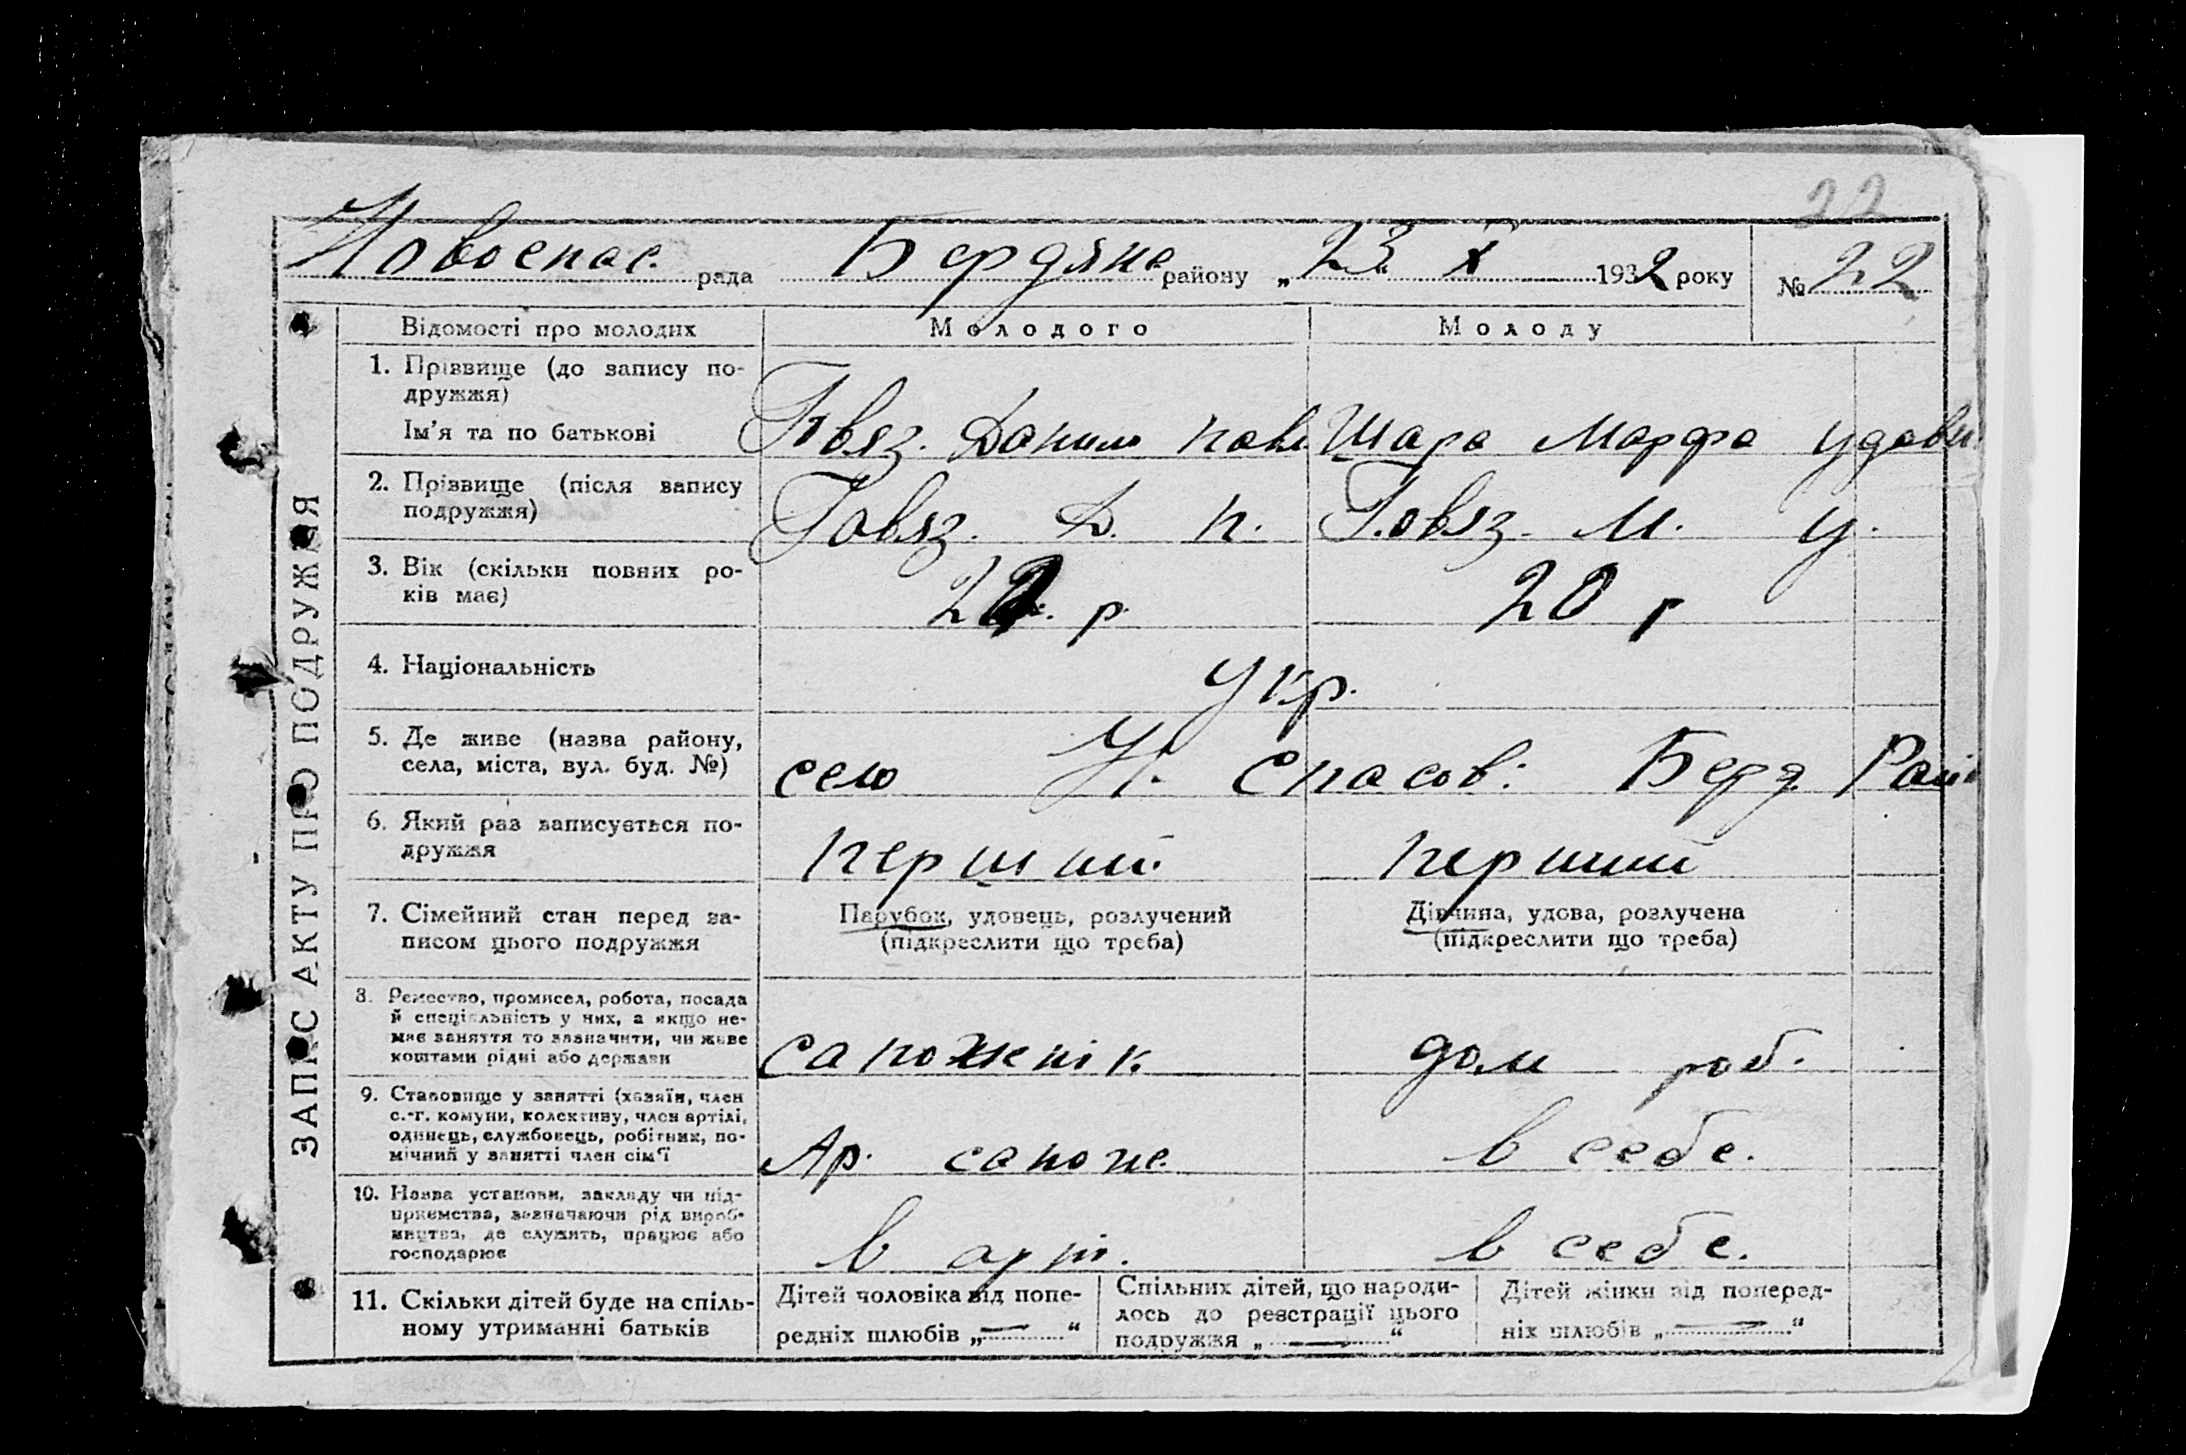 22
Новоспас. рада Бердянс. району „23“ X 1932 року № 22
ЗАПИС АКТУ ПРО ПОДРУЖЖЯ
Відомості про молодих
Молодого
Молоду
1. Прізвище (до запису по-
дружжя)
Ім'я та по батькові
Говяз. Данило Павл.
Шара Марфа
2. Прізвище (після запису
подружжя)
Говяз. Д. П.
Говяз. М. У.
3. Вік (скільки повних ро-
ків має)
р.
20 р
4. Національність
Укр.
5. Де живе (назва району,
села, міста, вул. буд. №)
село Н. Спасов. Берд. Рай
6. Який раз записується по-
дружжя
перший
перший
7. Сімейний стан перед за-
писом цього подружжя
Парубок, удовець, розлучений
(підкреслити що треба)
Дівчина, удова, розлучена
(підкреслити що треба)
8. Ремество, промисел, робота, посада
й спеціяльність у них, а якщо не-
має заняття то зазначити, чи живе
коштами рідні або держави
сапожнік
дом роб.
9. Становище у занятті (хазяїн, член
с.-г. комуни, колективу, член артілі,
одинець, службовець, робітник, по-
мічний у занятті член сім'ї
Ар. сапож.
в себе.
10. Назва установи, закладу чи під-
приємства, зазначаючи рід вироб-
ництва, де служить, працює або
господарює
в арт.
в себе.
11. Скільки дітей буде на спіль-
ному утриманні батьків
Дітей чоловіка від попе-
редніх шлюбів „—“
Спільних дітей, що народи-
лось до реєстрації цього
подружжя „—“
Дітей жінки від поперед-
ніх шлюбів „—“